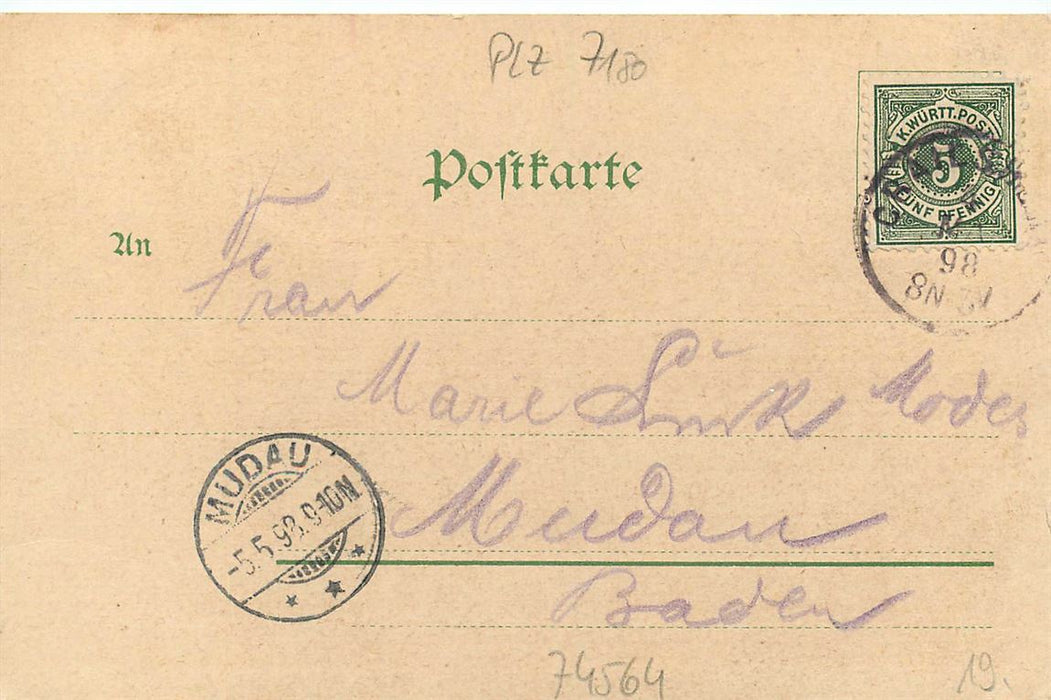 PLZ 7180
Postkarte
K.WÜRTT.POST
5
FÜNF PFENNIG
98
8N
An
Frau
Marie Link Modes
Mudau
Baden
MUDAU
-5.5.98.9-10N
74564
19.